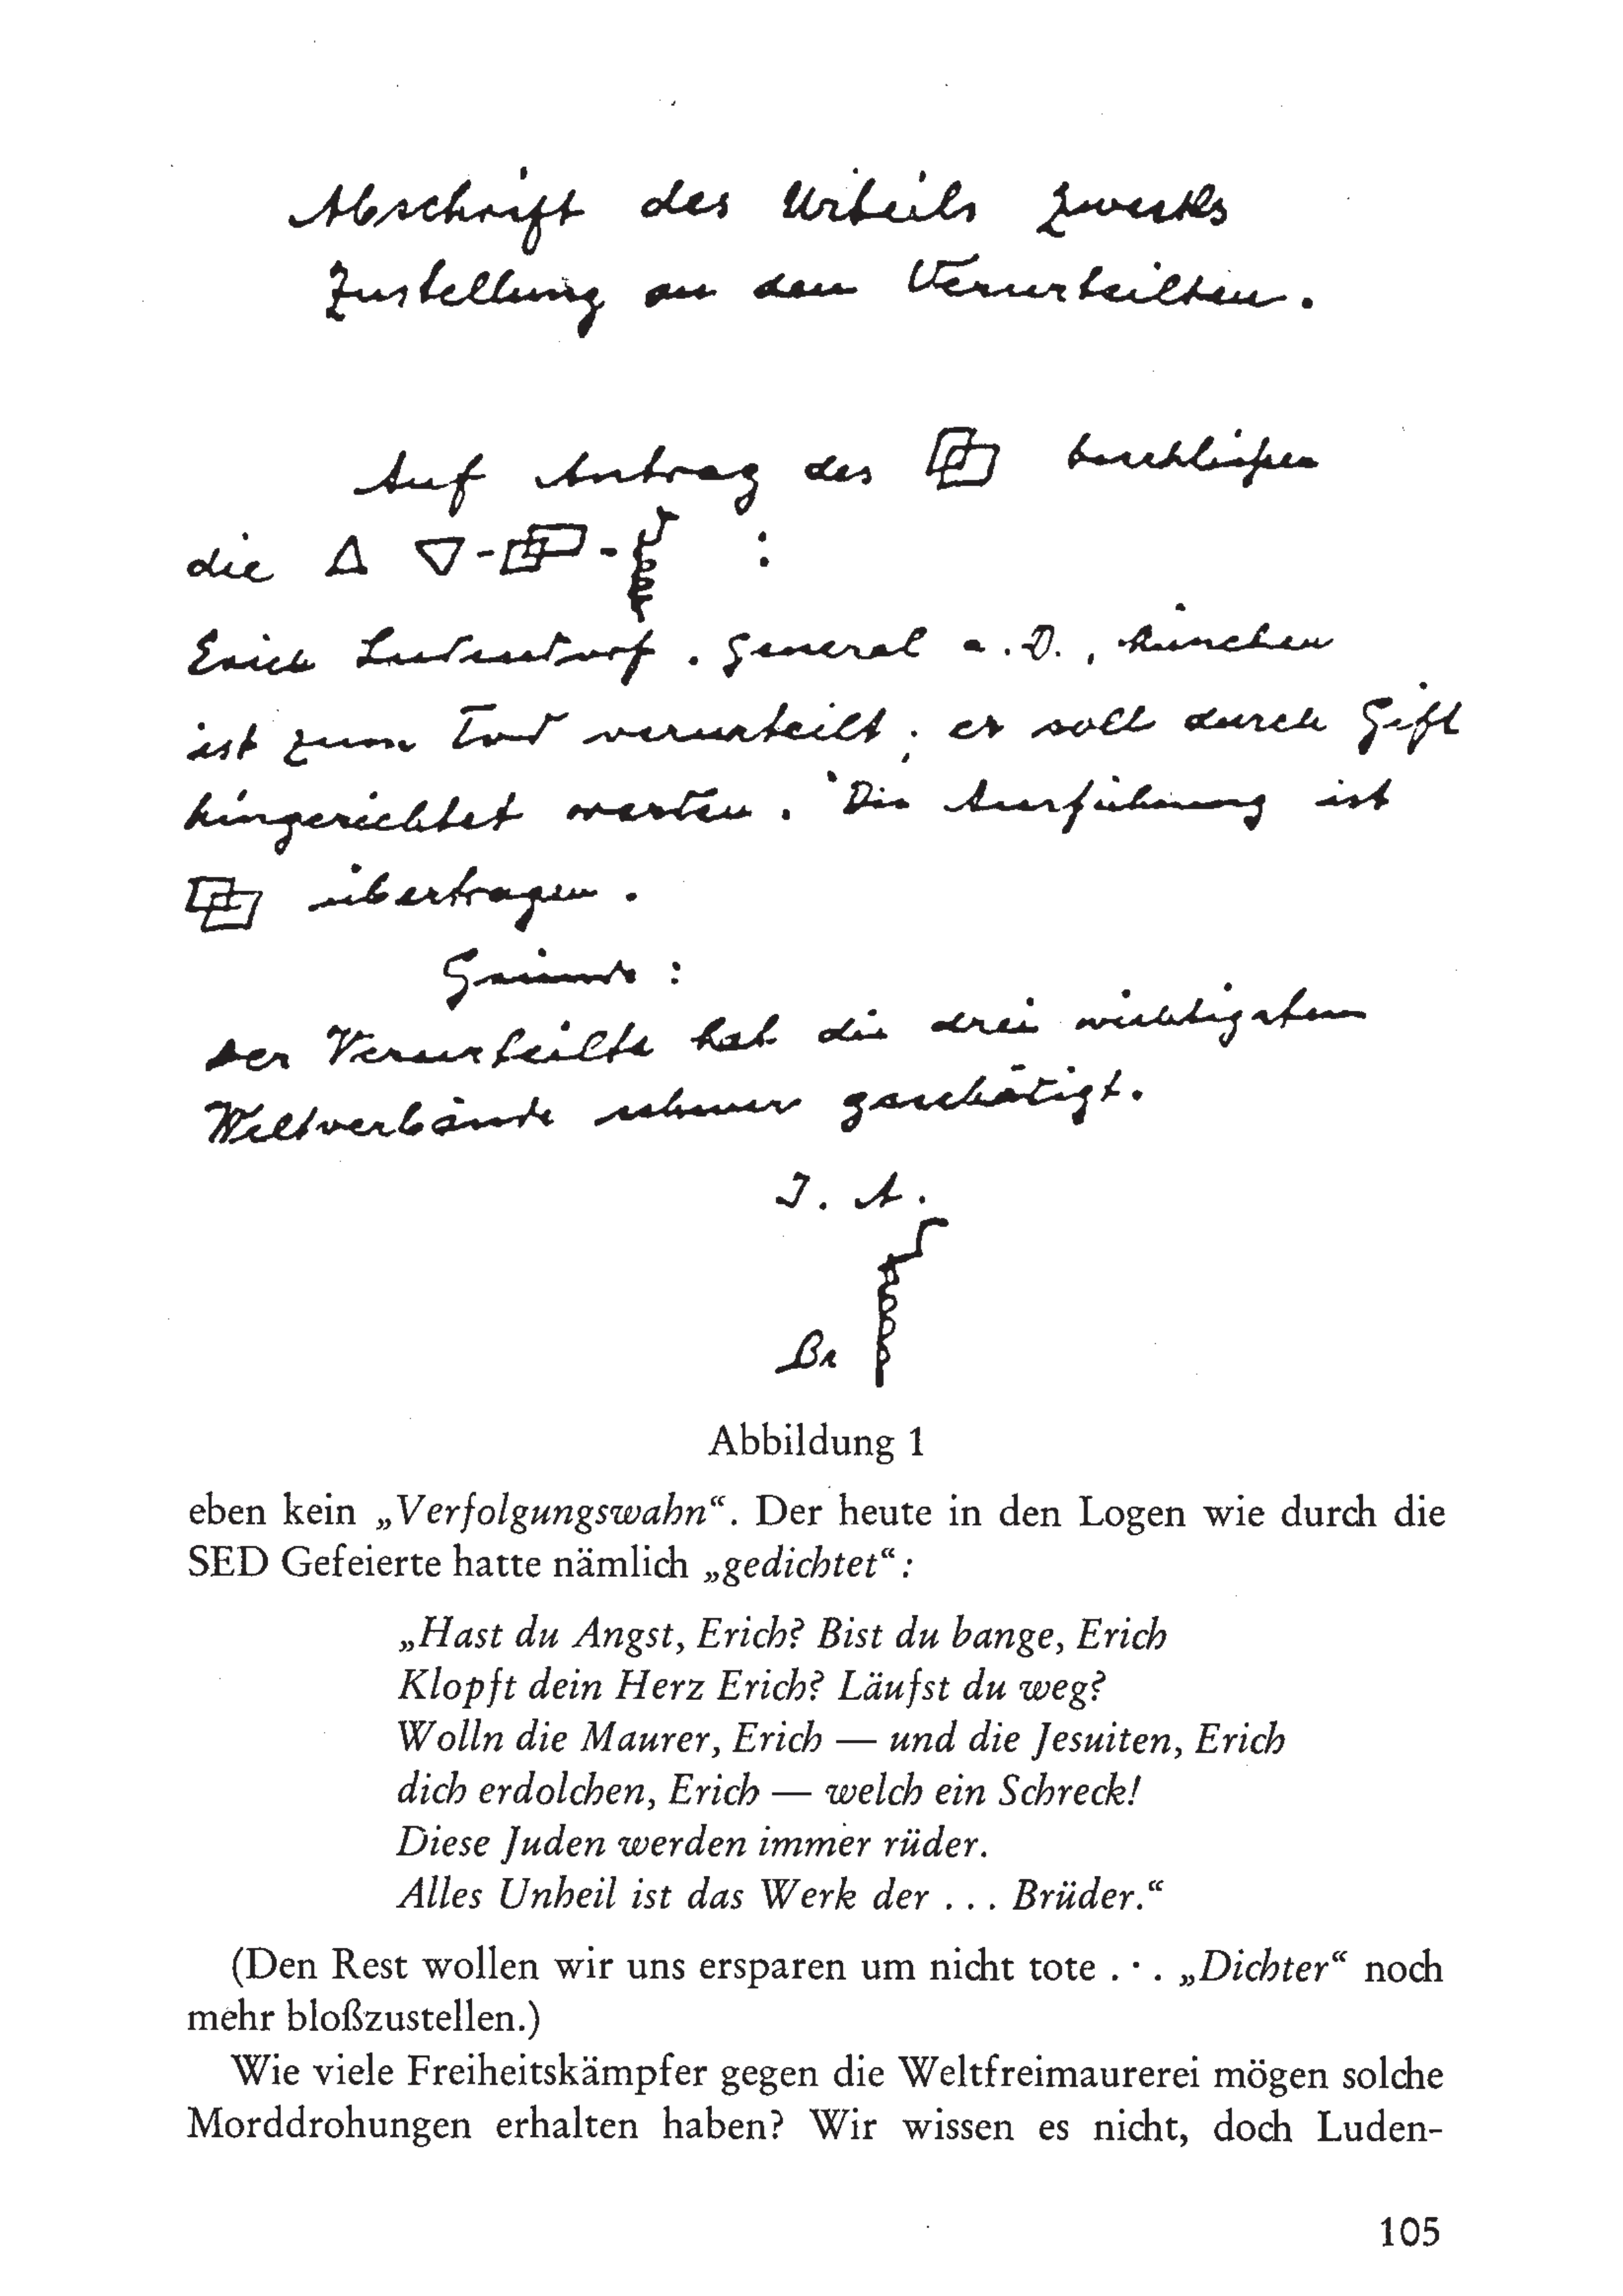 Abschrift des Urteils zwecks
Zustellung an den Verurteilten.
Auf Antrag des beschließen
die Δ ∇ - - :
Erich Ludendorf. General a.D., München
ist zum Tod verurteilt; er soll durch Gift
hingerichtet werden. Die Ausführung ist
übertragen.
Gründe:
Der Verurteilte hat die drei wichtigsten
Weltverbände schwer geschätigt.
I. A.
Br
Abbildung 1
eben kein „Verfolgungswahn“. Der heute in den Logen wie durch die
SED Gefeierte hatte nämlich „gedichtet“:
„Hast du Angst, Erich? Bist du bange, Erich
Klopft dein Herz Erich? Läufst du weg?
Wolln die Maurer, Erich — und die Jesuiten, Erich
dich erdolchen, Erich — welch ein Schreck!
Diese Juden werden immer rüder.
Alles Unheil ist das Werk der . . . Brüder.“
(Den Rest wollen wir uns ersparen um nicht tote . · . „Dichter“ noch
mehr bloßzustellen.)
Wie viele Freiheitskämpfer gegen die Weltfreimaurerei mögen solche
Morddrohungen erhalten haben? Wir wissen es nicht, doch Luden-
105